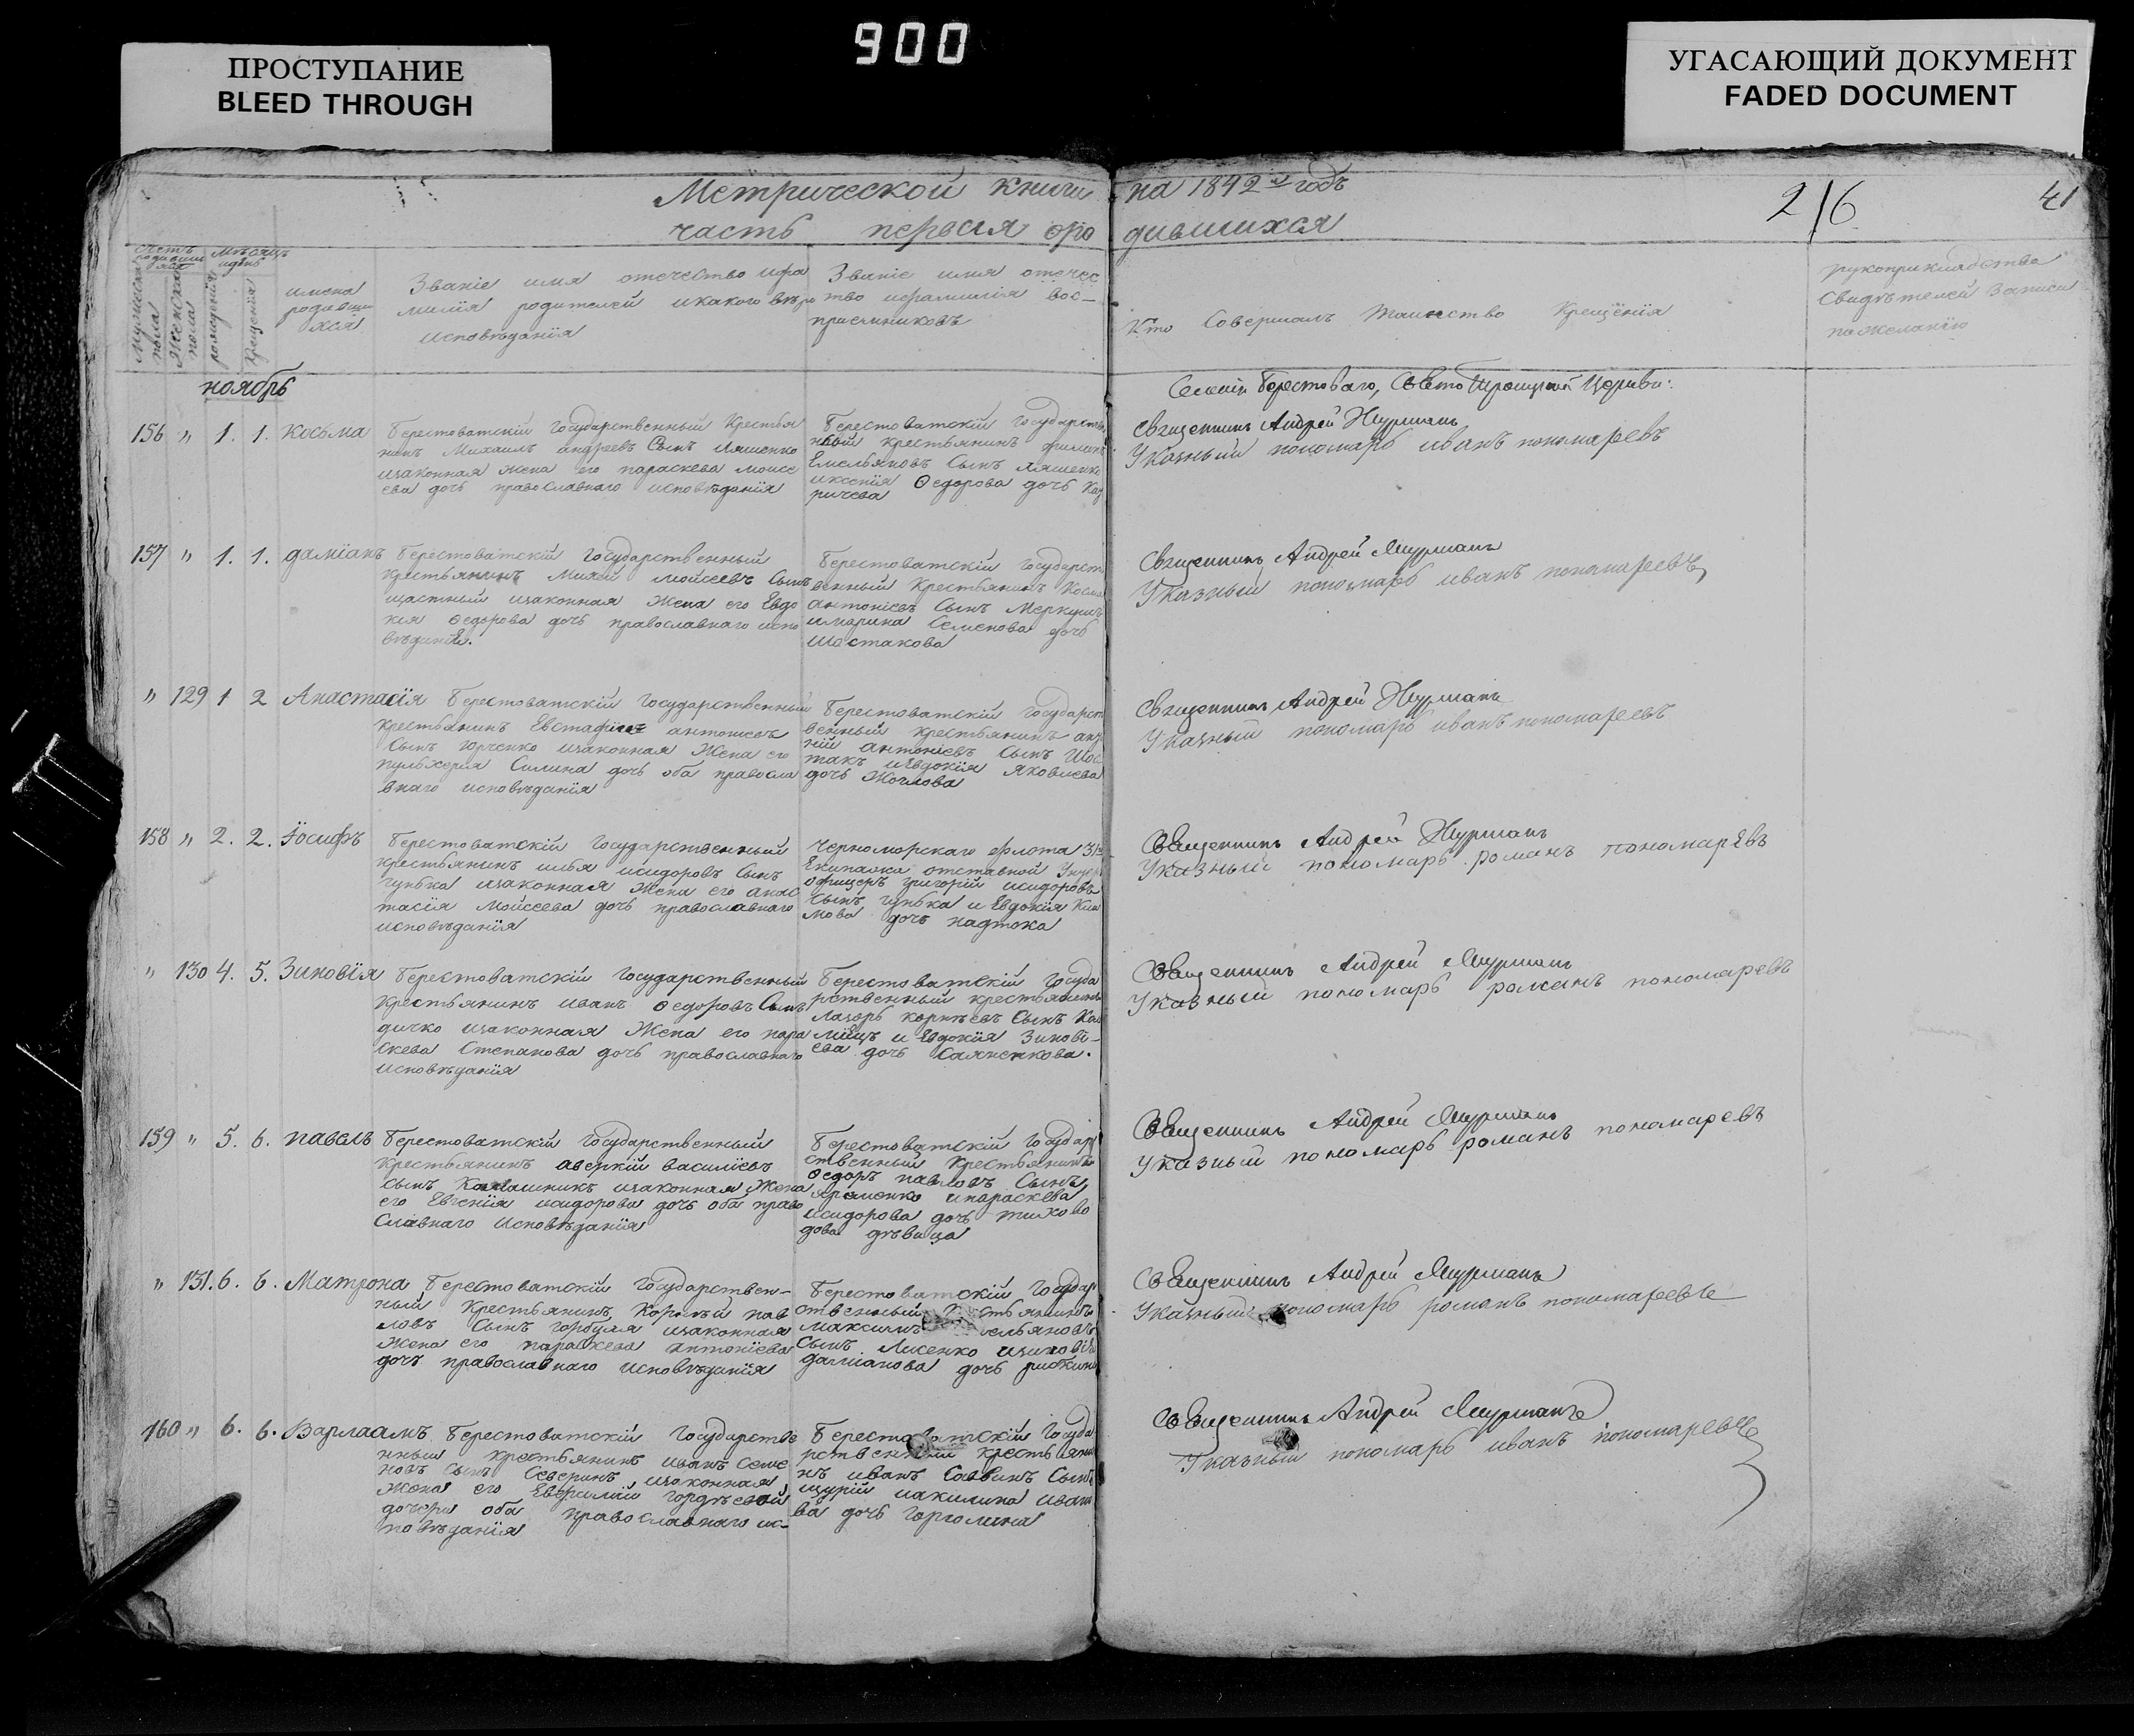 900
ПРОСТУПАНИЕ
BLEED THROUGH
УГАСАЮЩИЙ ДОКУМЕНТ
FADED DOCUMENT
Метрической книги на 1842й годъ
216
41
часть первая оро дившихся
Счетъ родивших ся
Мужеска пола
Женска пола
Мѣсяцъ идень
рожденія
Крещенія
имена
родивши
хся
Званіе имя отечество ифа
милія родителей икакого вѣро
исповѣданія
Званіе имя отечес
тво ифамилія вос-
приемниковъ
Кто Совершалъ Таинство Крещенія
рукоприкладство
Свидѣтелей Записи
пожеланію
ноябрь
Селенія Берестоваго, Свято Троицкой Церкви:
156 „ 1. 1. Косьма
Берестоватскій Государственный Крестья
нинъ Михаилъ андреевъ Сынъ Ляшенко
изаконная жена его параскева Моисе
ева дочь православнаго исповѣданія
Берестоватскій Государствен
ный крестьянинъ филипъ
Емельяновъ Сынъ Ляшенко
иксенія Ѳедорова дочь
ричева
Священникъ Андрей Шурманъ
Указный пономарь иванъ пономаревъ
157 „ 1. 1. даміанъ
Берестоватскій Государственный
Крестьянинъ Михей Мойсеевъ Сынъ
щастный изаконная Жена его Евдо
кія Ѳедорова дочь православнаго испо
вѣданія.
Берестоватскій Государст
венный Крестьянинъ Косма
антоніевъ Сынъ
имарина Семенова дочь
Шостакова
Священникъ Андрей Шурманъ
Указный пономарь иванъ пономаревъ
„ 129 1 2 Анастасія
Берестоватскій Государственный
Крестьянинъ Евстафій антоніевъ
Сынъ Горченко изаконная Жена его
пульхерія Силина дочь оба правосла
внаго исповѣданія
Берестоватскій Государст
венный крестьянинъ
ній антоніевъ Сынъ Шос
такъ иЕвдокія Яковлева
дочь
Священникъ Андрей Шурманъ
Указный пономарь иванъ пономаревъ
158 „ 2. 2. Іосифъ
Берестоватскій Государственный
крестьянинъ илья исидоровъ Сынъ
гунька изаконная Жена его анас
тасія Мойсеева дочь православнаго
исповѣданія
Черноморскаго флота 31го
Екипажа отставной Унтеръ
офицеръ григорій исидоровъ
Сынъ гунька и Евдокія Кли
мова дочь надтока
Священникъ Андрей Шурманъ
Указный пономарь романъ пономарѣвъ
„ 130 4. 5. Зиновія
Берестоватскій Государственный
Крестьянинъ иванъ Ѳедоровъ Сынъ
дичко изаконная Жена его пара
скева Степанова дочь православнаго
исповѣданія
Берестоватскій Госуда
рственный крестьянинъ
Лазорь корнѣевъ Сынъ
и Евдокія Зиновѣ-
ева дочь Саяненкова.
Священникъ Андрей Шурманъ
Указный пономарь романъ пономаревъ
159 „ 5. 6. павелъ
Берестоватскій Государственный
Крестьянинъ аверкій василіевъ
Сынъ изаконная Жена
его Евгенія исидорова дочь оба право
Славнаго Исповѣданія
Берестоватскій Государ
ственный Крестьянинъ
Ѳедоръ павловъ Сынъ
Яременко ипараскева
исидорова дочь
дова дѣвица
Священникъ Андрей Шурманъ
Указный пономарь романъ пономаревъ
„ 131. 6. 6. Матрона
Берестоватскій Государствен-
ный Крестьянинъ Корнѣй пав
ловъ Сынъ горбуля изаконная
Жена его параскева антоніева
дочь православнаго исповѣданія
Берестоватскій Государ
ственный Крестьянинъ
Максимъ ельяновъ
Сынъ Лисенко изиновія
даміанова дочь
Священникъ Андрей Шурманъ
Указный пономарь романъ пономаревъ
160 „ 6. 6. Варлаамъ
Берестоватскій Государстве
нный крестьянинъ иванъ Семе
новъ Сынъ Северинъ, изаконная
Жена его гордѣевой
дочери оба православнаго ис-
повѣданія
Берестоватскій Госуда
рственный Крестьяни
нъ иванъ Саввинъ Сынъ
щурій иакилина ивано
ва дочь
Священникъ Андрей Шурманъ
Указный пономарь иванъ пономаревъ